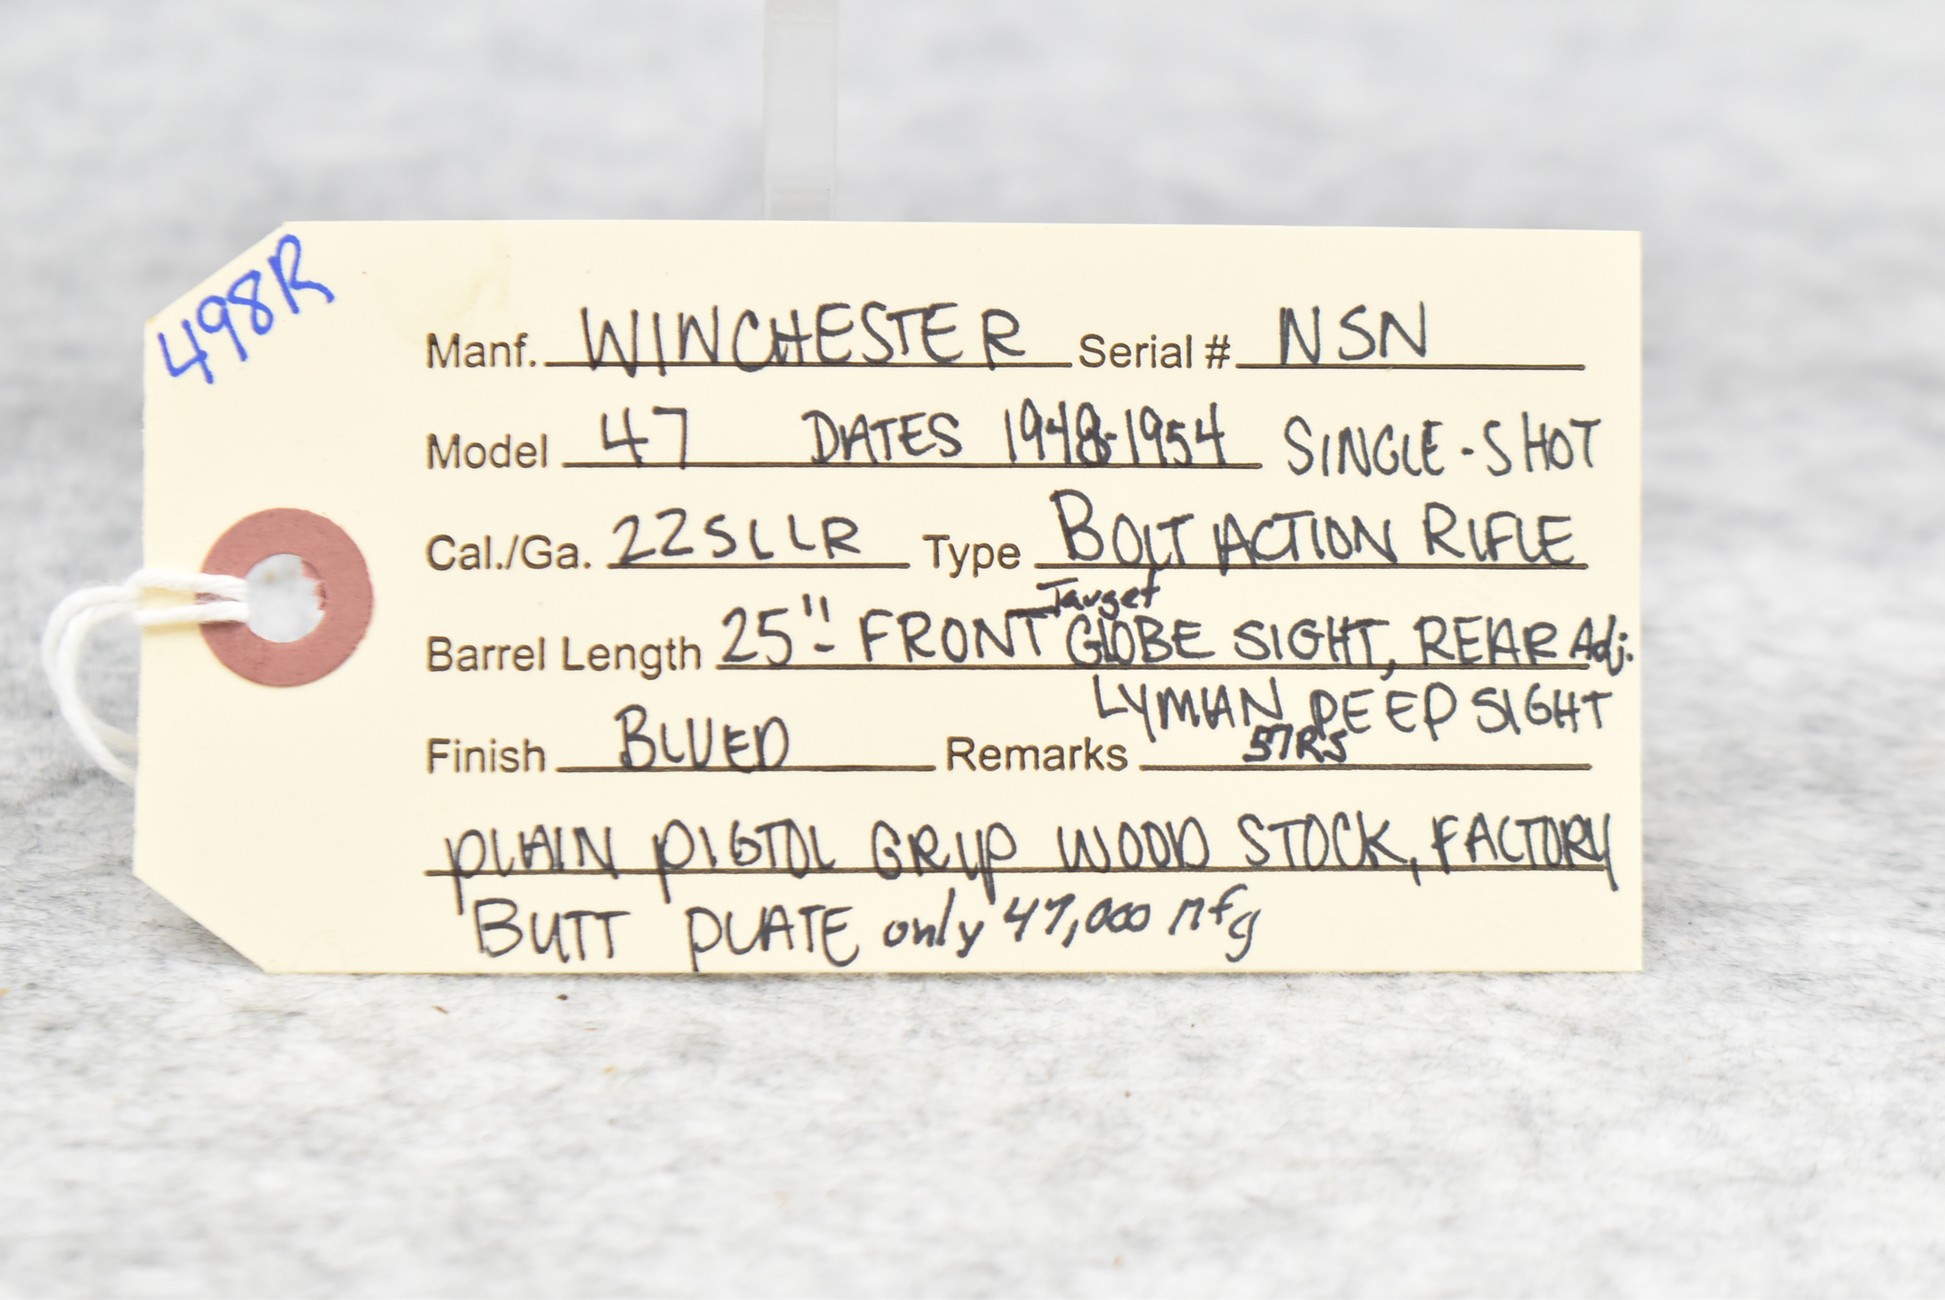 498R
Manf. WINCHESTER Serial # NSN
Model 47 DATES 1948-1954 SINGLE-SHOT
Cal./Ga. 22SLLR Type BOLT ACTION RIFLE
Target
Barrel Length 25"- FRONT GLOBE SIGHT, REAR Adj.
LYMAN PEEP SIGHT
Finish BLUED Remarks 57RS
PLAIN PISTOL GRIP WOOD STOCK, FACTORY
BUTT PLATE only 47,000 mfg